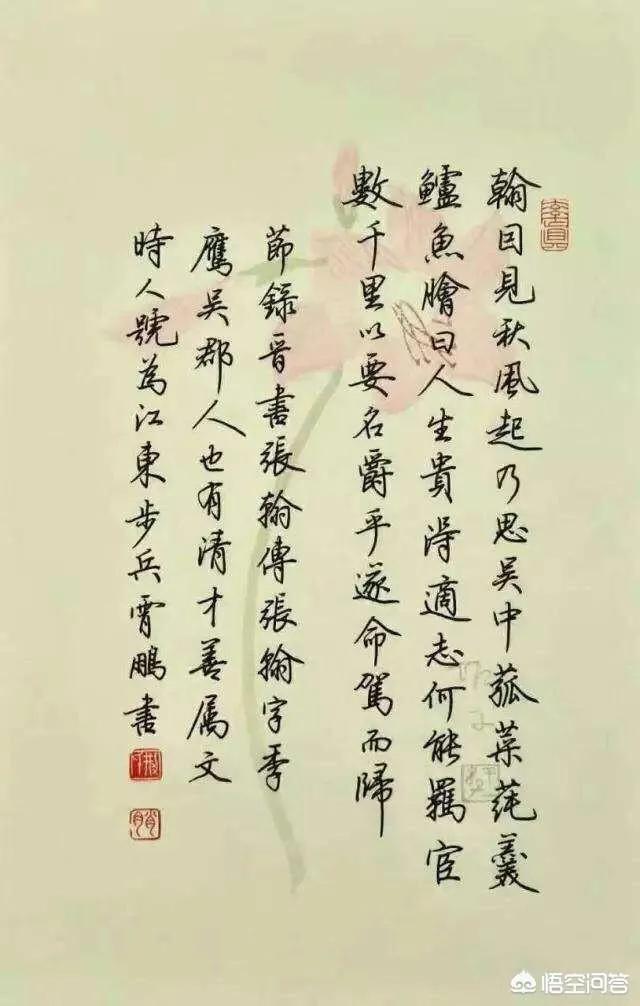 翰因見秋風起乃思吳中菰菜蓴羹
鱸魚膾曰人生貴得適志何能羈宦
數千里以要名爵乎遂命駕而歸
節錄晉書張翰傳張翰字季
鷹吳郡人也有清才善属文
時人號為江東步兵霄鵬書
悟空问答